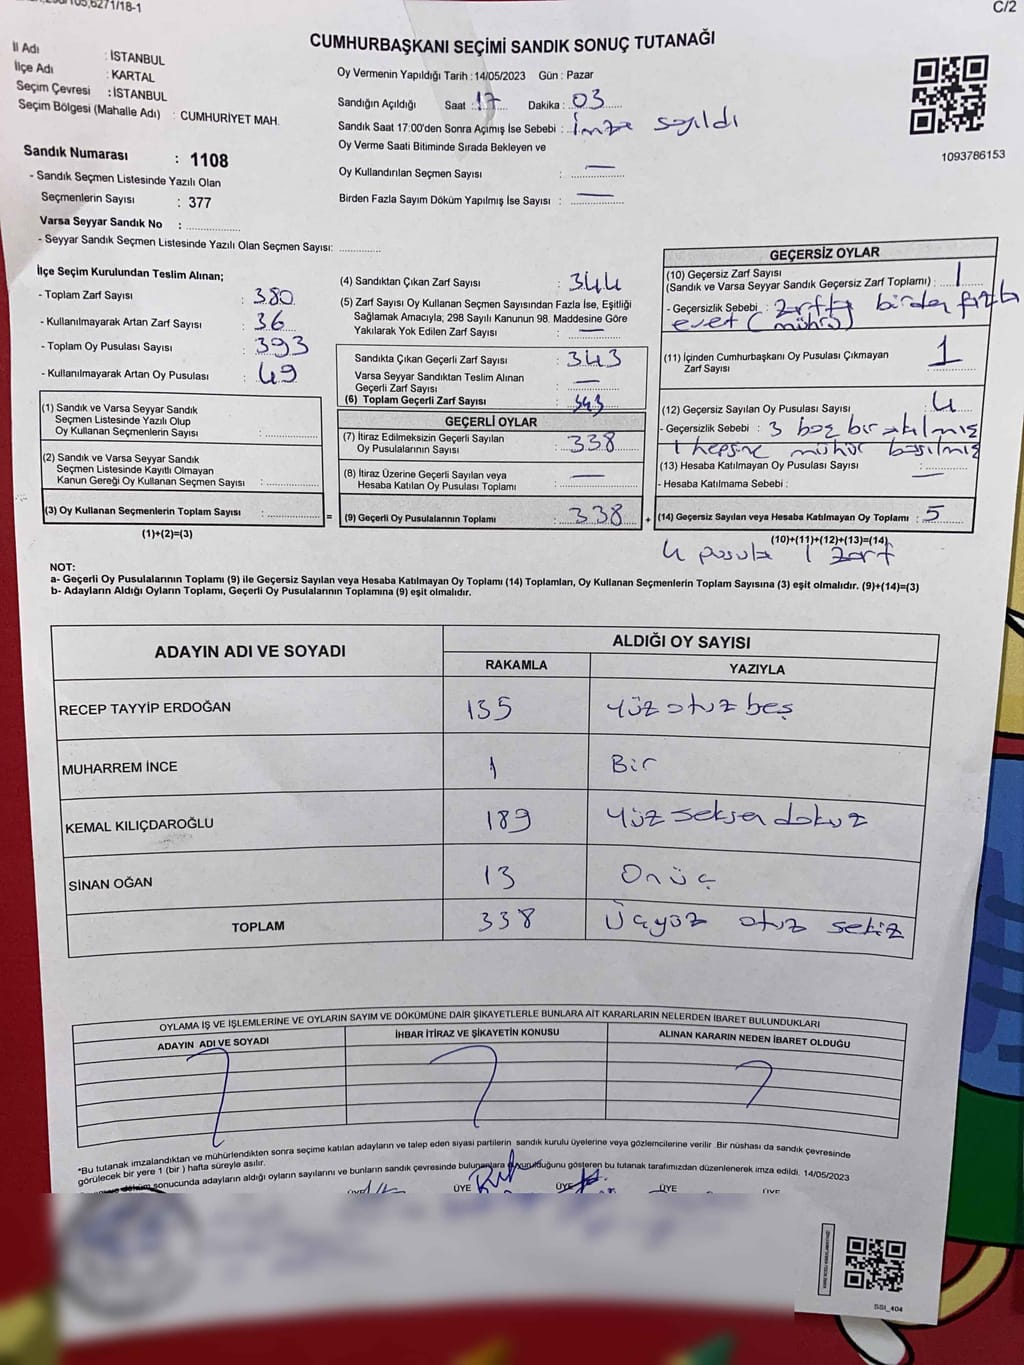 C/2
6271/18-1
CUMHURBAŞKANI SEÇİMİ SANDIK SONUÇ TUTANAĞI
İl Adı : İSTANBUL
İlçe Adı : KARTAL
Seçim Çevresi : İSTANBUL
Seçim Bölgesi (Mahalle Adı) : CUMHURİYET MAH.
Sandık Numarası : 1108
- Sandık Seçmen Listesinde Yazılı Olan
Seçmenlerin Sayısı : 377
Varsa Seyyar Sandık No :
- Seyyar Sandık Seçmen Listesinde Yazılı Olan Seçmen Sayısı:
Oy Vermenin Yapıldığı Tarih : 14/05/2023 Gün : Pazar
Sandığın Açıldığı Saat : 17 Dakika : 03
Sandık Saat 17:00'den Sonra Açımış İse Sebebi : İmza sayıldı
Oy Verme Saati Bitiminde Sırada Bekleyen ve
Oy Kullandırılan Seçmen Sayısı : —
Birden Fazla Sayım Döküm Yapılmış İse Sayısı : —
1093786153
İlçe Seçim Kurulundan Teslim Alınan;
- Toplam Zarf Sayısı : 380
- Kullanılmayarak Artan Zarf Sayısı : 36
- Toplam Oy Pusulası Sayısı : 393
- Kullanılmayarak Artan Oy Pusulası : 49
(1) Sandık ve Varsa Seyyar Sandık
Seçmen Listesinde Yazılı Olup
Oy Kullanan Seçmenlerin Sayısı :
(2) Sandık ve Varsa Seyyar Sandık
Seçmen Listesinde Kayıtlı Olmayan
Kanun Gereği Oy Kullanan Seçmen Sayısı :
(3) Oy Kullanan Seçmenlerin Toplam Sayısı : =
(1)+(2)=(3)
(4) Sandıktan Çıkan Zarf Sayısı : 344
(5) Zarf Sayısı Oy Kullanan Seçmen Sayısından Fazla İse, Eşitliği
Sağlamak Amacıyla; 298 Sayılı Kanunun 98. Maddesine Göre
Yakılarak Yok Edilen Zarf Sayısı : —
Sandıkta Çıkan Geçerli Zarf Sayısı : 343
Varsa Seyyar Sandıktan Teslim Alınan
Geçerli Zarf Sayısı : —
(6) Toplam Geçerli Zarf Sayısı : 343
GEÇERLİ OYLAR
(7) İtiraz Edilmeksizin Geçerli Sayılan
Oy Pusulalarının Sayısı : 338
(8) İtiraz Üzerine Geçerli Sayılan veya
Hesaba Katılan Oy Pusulası Toplamı : —
(9) Geçerli Oy Pusulalarının Toplamı : 338 +
GEÇERSİZ OYLAR
(10) Geçersiz Zarf Sayısı
(Sandık ve Varsa Seyyar Sandık Geçersiz Zarf Toplamı) : 1
- Geçersizlik Sebebi : zarfta birden fazla
evet (mührü)
(11) İçinden Cumhurbaşkanı Oy Pusulası Çıkmayan
Zarf Sayısı : 1
(12) Geçersiz Sayılan Oy Pusulası Sayısı : 4
- Geçersizlik Sebebi : 3 boş bırakılmış
1 hepsine mühür basılmış
(13) Hesaba Katılmayan Oy Pusulası Sayısı : —
- Hesaba Katılmama Sebebi :
(14) Geçersiz Sayılan veya Hesaba Katılmayan Oy Toplamı : 5
(10)+(11)+(12)+(13)=(14)
4 pusula 1 zarf
NOT:
a- Geçerli Oy Pusulalarının Toplamı (9) ile Geçersiz Sayılan veya Hesaba Katılmayan Oy Toplamı (14) Toplamları, Oy Kullanan Seçmenlerin Toplam Sayısına (3) eşit olmalıdır. (9)+(14)=(3)
b- Adayların Aldığı Oyların Toplamı, Geçerli Oy Pusulalarının Toplamına (9) eşit olmalıdır.
ADAYIN ADI VE SOYADI ALDIĞI OY SAYISI
RAKAMLA YAZIYLA
RECEP TAYYİP ERDOĞAN 135 Yüz otuz beş
MUHARREM İNCE 1 Bir
KEMAL KILIÇDAROĞLU 189 Yüz seksen dokuz
SİNAN OĞAN 13 Onüç
TOPLAM 338 Üçyüz otuz sekiz
OYLAMA İŞ VE İŞLEMLERİNE VE OYLARIN SAYIM VE DÖKÜMÜNE DAİR ŞİKAYETLERLE BUNLARA AİT KARARLARIN NELERDEN İBARET BULUNDUKLARI
ADAYIN ADI VE SOYADI İHBAR İTİRAZ VE ŞİKAYETİN KONUSU ALINAN KARARIN NEDEN İBARET OLDUĞU
*Bu tutanak imzalandıktan ve mühürlendikten sonra seçime katılan adayların ve talep eden siyasi partilerin sandık kurulu üyelerine veya gözlemcilerine verilir Bir nüshası da sandık çevresinde
görülecek bir yere 1 (bir) hafta süreyle asılır.
sonucunda adayların aldığı oyların sayılarını ve bunların sandık çevresinde bulunanlara duyurulduğunu gösteren bu tutanak tarafımızdan düzenlenerek imza edildi. 14/05/2023
ÜYE ÜYE ÜYE ÜYE ÜYE
SSI_404